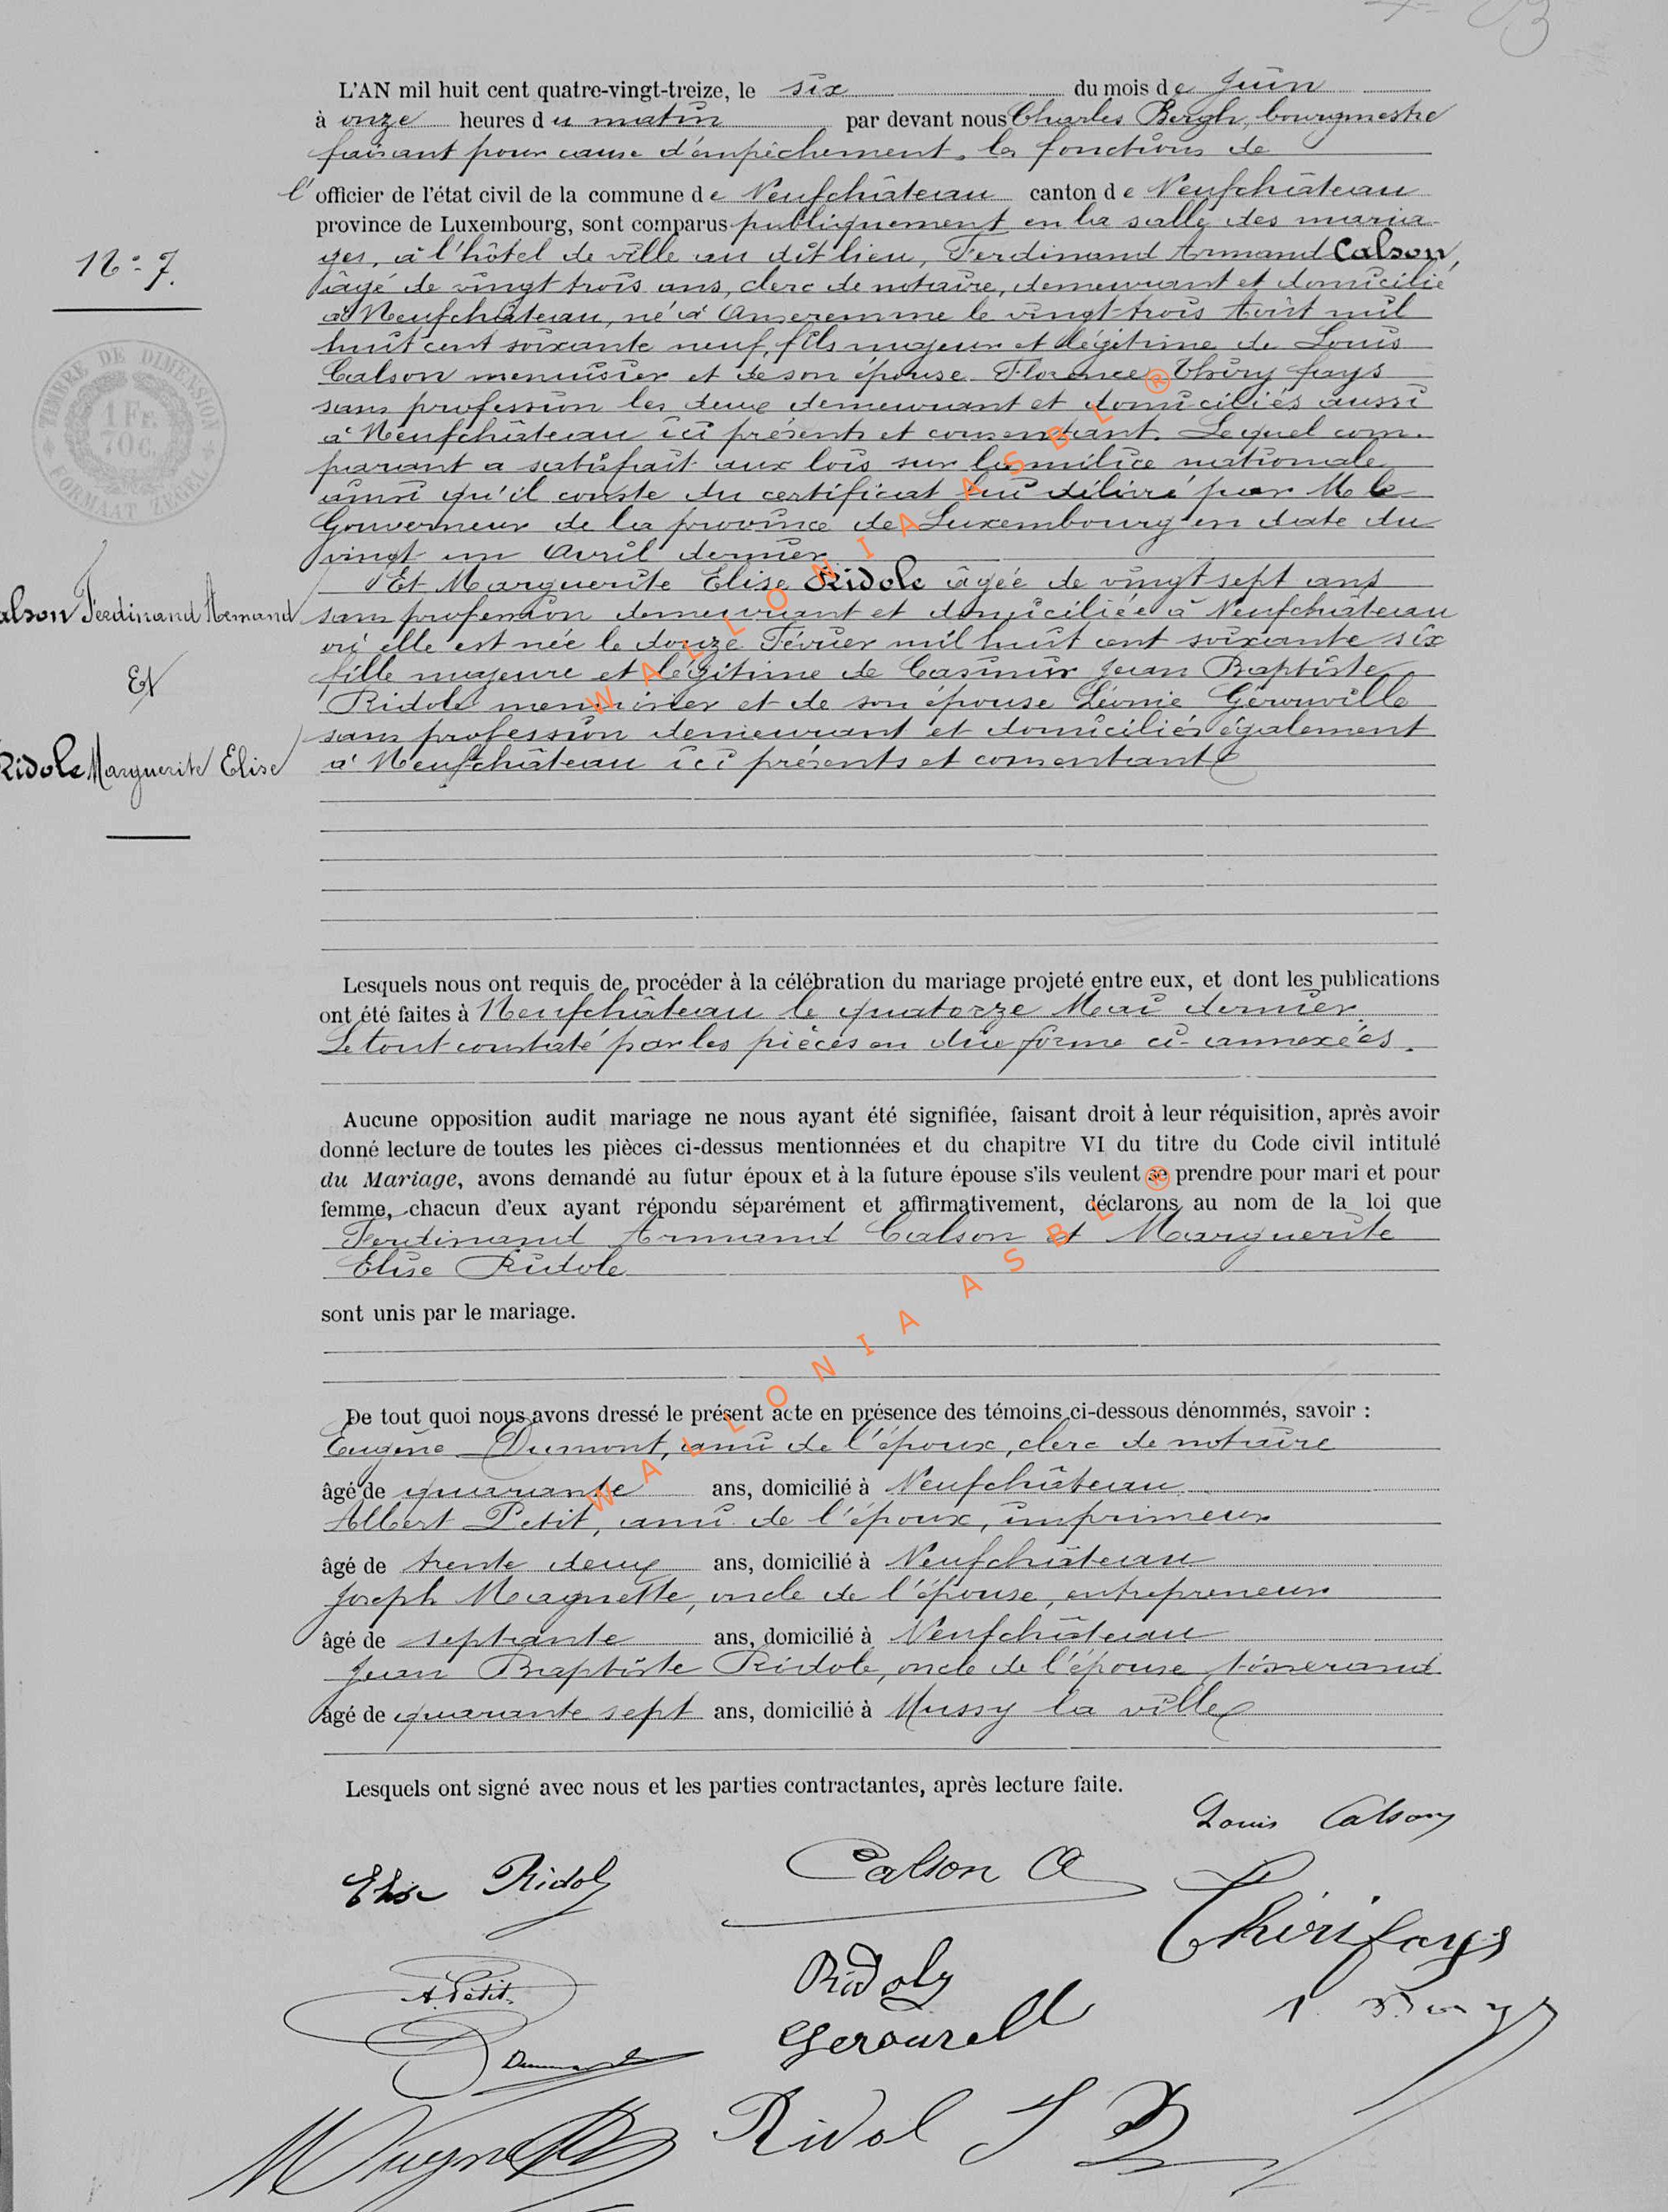 L'AN mil huit cent quatre-vingt-treize, le six du mois de Juin
à onze heures du matin par devant nous Charles Bergh, bourgmestre
faisant pour cause d'empêchement, les fonctions de
l'officier de l'état civil de la commune de Neufchâteau canton de Neufchâteau
province de Luxembourg, sont comparus publiquement en la salle des maria-
ges, à l'hôtel de ville au dit lieu, Ferdinand Armand Calson,
N° 7.
âgé de vingt trois ans, clerc de notaire, demeurant et domicilié
à Neufchâteau, né à Anseremme le vingt-trois Août mil
huit cent soixante neuf, fils majeur et légitime de Louis
Calson menuisier et de son épouse Florence Thiry fays
sans profession les deux demeurant et domiciliés aussi
à Neufchâteau ici présents et consentant. Lequel com-
parant a satisfait aux lois sur la milice nationale
ainsi qu'il conste du certificat lui délivré par M le
Gouverneur de la province de Luxembourg en date du
vingt un Avril dernier
TIMBRE DE DIMENSION
1 Fr.
70 c.
FORMAAT ZEGEL
Et Marguerite Elise Ridole âgée de vingt sept ans
sans profession demeurant et domiciliée à Neufchâteau
où elle est née le douze Février mil huit cent soixante six
fille majeure et légitime de Casimir Jean Baptiste
Ridole menuisier et de son épouse Léonie Gérouville
sans profession demeurant et domiciliés également
à Neufchâteau ici présents et consentant
alson Ferdinand Armand
Et
Ridole Marguerite Elise
Lesquels nous ont requis de procéder à la célébration du mariage projeté entre eux, et dont les publications
ont été faites à Neufchâteau le quatorze Mai dernier.
Le tout constaté par les pièces en due forme ci-annexées.
Aucune opposition audit mariage ne nous ayant été signifiée, faisant droit à leur réquisition, après avoir
donné lecture de toutes les pièces ci-dessus mentionnées et du chapitre VI du titre du Code civil intitulé
du Mariage, avons demandé au futur époux et à la future épouse s'ils veulent se prendre pour mari et pour
femme, chacun d'eux ayant répondu séparément et affirmativement, déclarons au nom de la loi que
Ferdinand Armand Calson et Marguerite
Elise Ridole
sont unis par le mariage.
De tout quoi nous avons dressé le présent acte en présence des témoins ci-dessous dénommés, savoir :
Eugène Dumont, ami de l'époux, clerc de notaire
âgé de quarante ans, domicilié à Neufchâteau
Albert Petit, ami de l'époux, imprimeur
âgé de trente deux ans, domicilié à Neufchâteau
Joseph Magnette, oncle de l'épouse, entrepreneur
âgé de septante ans, domicilié à Neufchâteau
Jean Baptiste Ridole, oncle de l'épouse, tisserand
âgé de quarante sept ans, domicilié à Mussy la ville
Lesquels ont signé avec nous et les parties contractantes, après lecture faite.
Louis Calson
Elise Ridole
Calson A
Thirifays
A. Petit
Ridole
Dumont
Magnette
Ridol J B
WALLONIA ASBL ®
WALLONIA ASBL ®